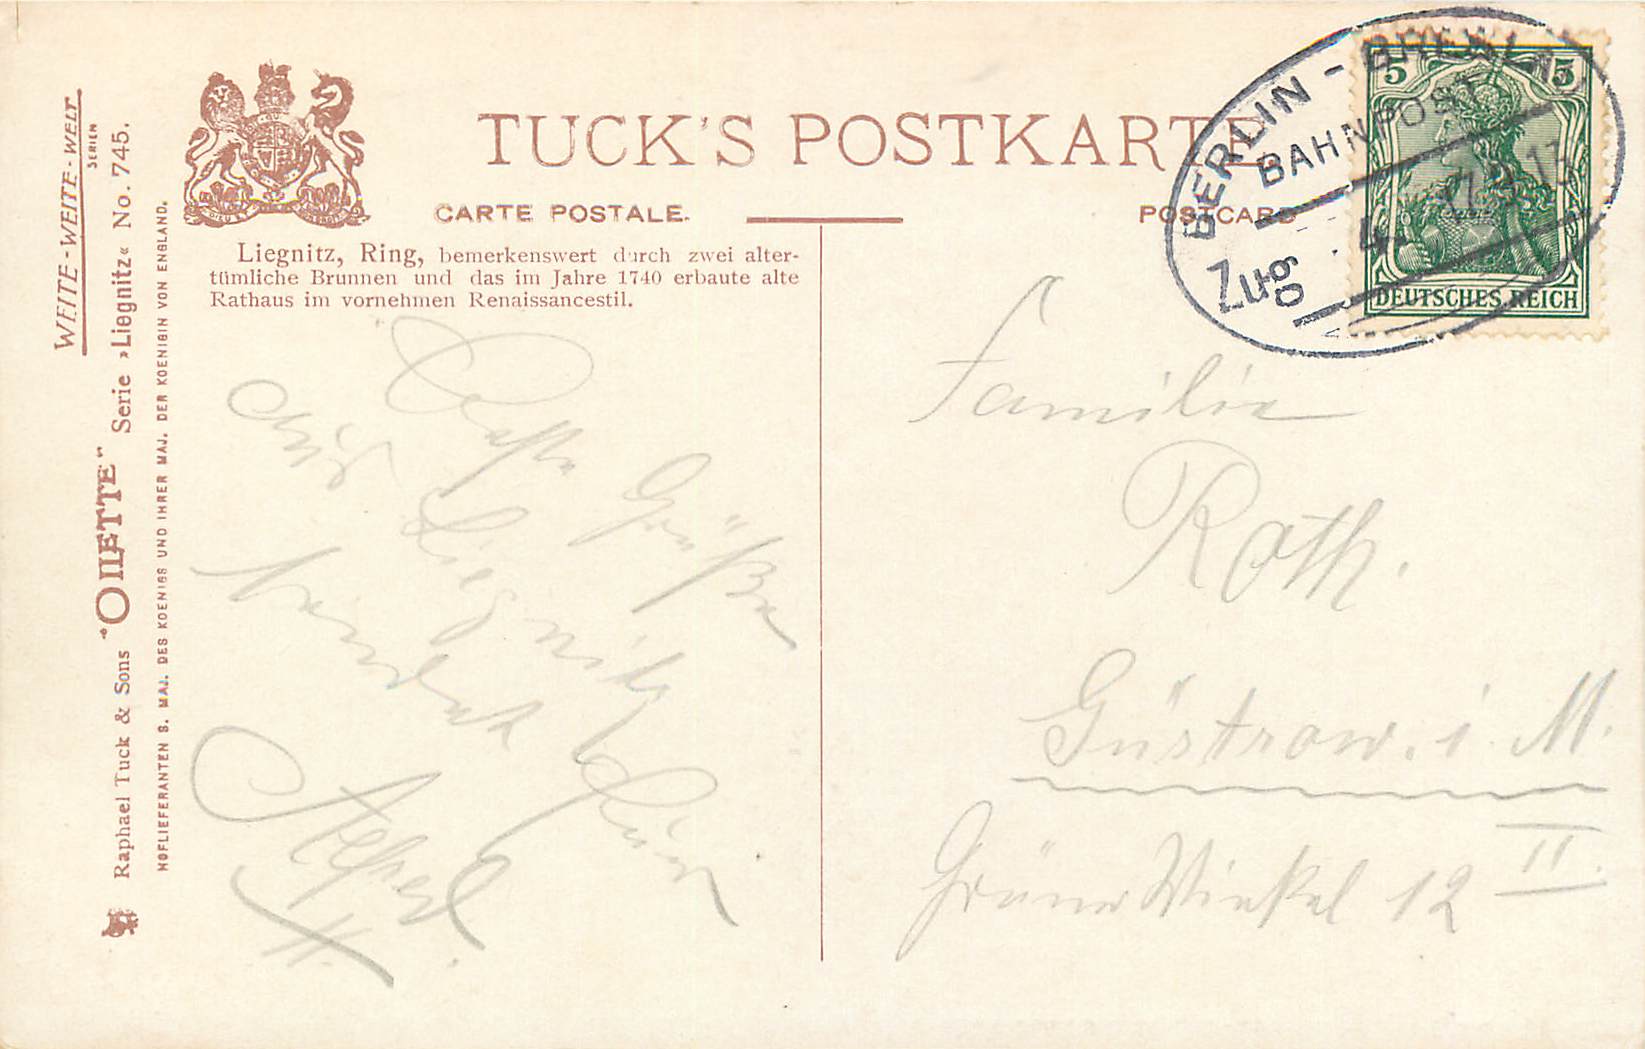 WEITE-WEITE-WELT
SERIEN
Raphael Tuck & Sons "OILETTE" Serie »Liegnitz« No. 745.
HOFLIEFERANTEN S. MAJ. DES KOENIGS UND IHRER MAJ. DER KOENIGIN VON ENGLAND.
TUCK'S POSTKARTE.
CARTE POSTALE.
POSTCARD
Liegnitz, Ring, bemerkenswert durch zwei alter-
tümliche Brunnen und das im Jahre 1740 erbaute alte
Rathaus im vornehmen Renaissancestil.
BERLIN - BRESLAU
BAHNPOST
Zug
5 5
DEUTSCHES REICH
Grüße
aus Liegnitz
sendet
Familie
Roth.
Güstrow. i. M.
Grüner Winkel 12 II.